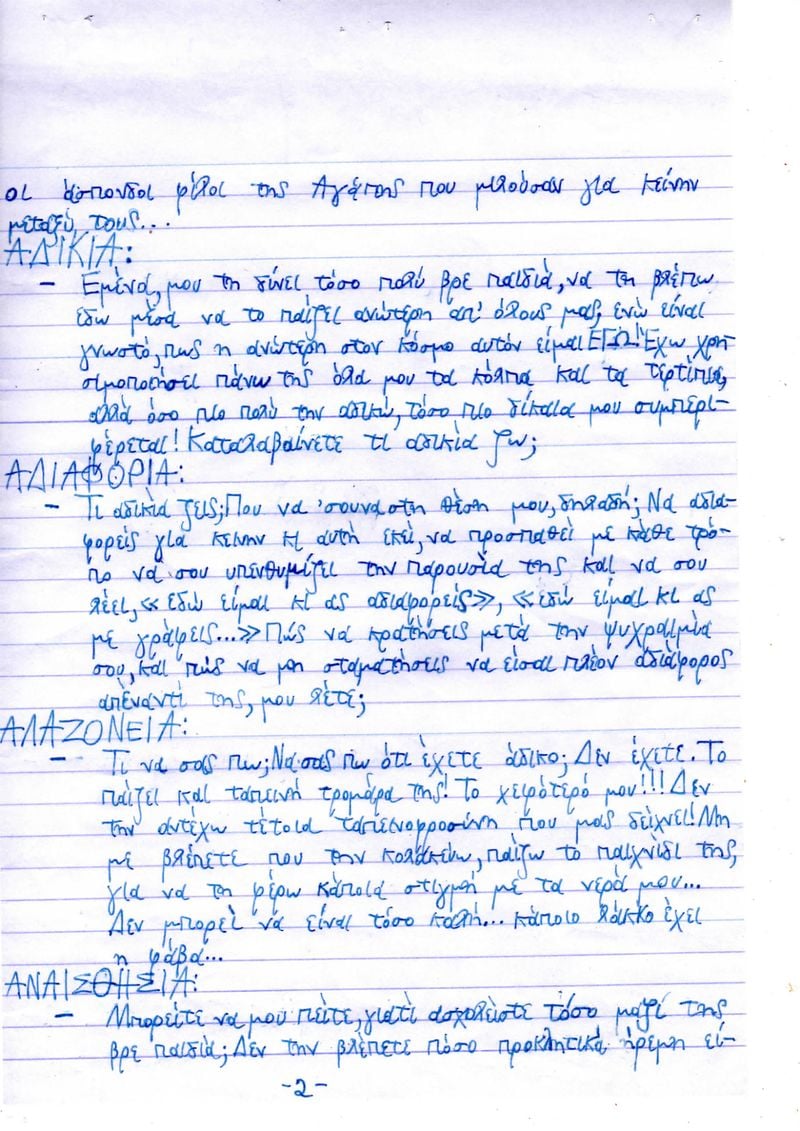 οι άσπονδοι φίλοι της Αγάπης που μιλούσαν για κείνην
μεταξύ τους...
ΑΔΙΚΙΑ:
– Εμένα, μου τη δίνει τόσο πολύ βρε παιδιά, να τη βλέπω
εδώ μέσα να το παίζει ανώτερη απ' όλους μας, ενώ είναι
γνωστό, πως η ανώτερη στον κόσμο αυτόν είμαι ΕΓΩ! Έχω χρη-
σιμοποιήσει πάνω της όλα μου τα κόλπα και τα τερτίπια,
αλλά όσο πιο πολύ την αδικώ, τόσο πιο δίκαια μου συμπερι-
φέρεται! Καταλαβαίνετε τι αδικία ζω;
ΑΔΙΑΦΟΡΙΑ:
– Τι αδικία ζεις; Που να 'σουνα στη θέση μου, δηλαδή; Να αδια-
φορείς για κείνην κι αυτή εκεί, να προσπαθεί με κάθε τρό-
πο να σου υπενθυμίζει την παρουσία της και να σου
λέει, «εδώ είμαι κι ας αδιαφορείς», «εδώ είμαι κι ας
με γράφεις...» Πώς να κρατήσεις μετά την ψυχραιμία
σου, και πώς να μη σταματήσεις να είσαι πλέον αδιάφορος
απέναντί της, μου λέτε;
ΑΛΑΖΟΝΕΙΑ:
– Τι να σας πω; Να σας πω ότι έχετε άδικο; Δεν έχετε. Το
παίζει και ταπεινή τρομάρα της! Το χειρότερό μου!!! Δεν
την αντέχω τέτοια ταπεινοφροσύνη που μας δείχνει! Μη
με βλέπετε που την κολακεύω, παίζω το παιχνίδι της,
για να τη φέρω κάποια στιγμή με τα νερά μου...
Δεν μπορεί να είναι τόσο καλή... κάποιο λάκκο έχει
η φάβα...
ΑΝΑΙΣΘΗΣΙΑ:
– Μπορείτε να μου πείτε, γιατί ασχολείστε τόσο μαζί της
βρε παιδιά; Δεν την βλέπετε πόσο προκλητικά ήρεμη εί-
-2-